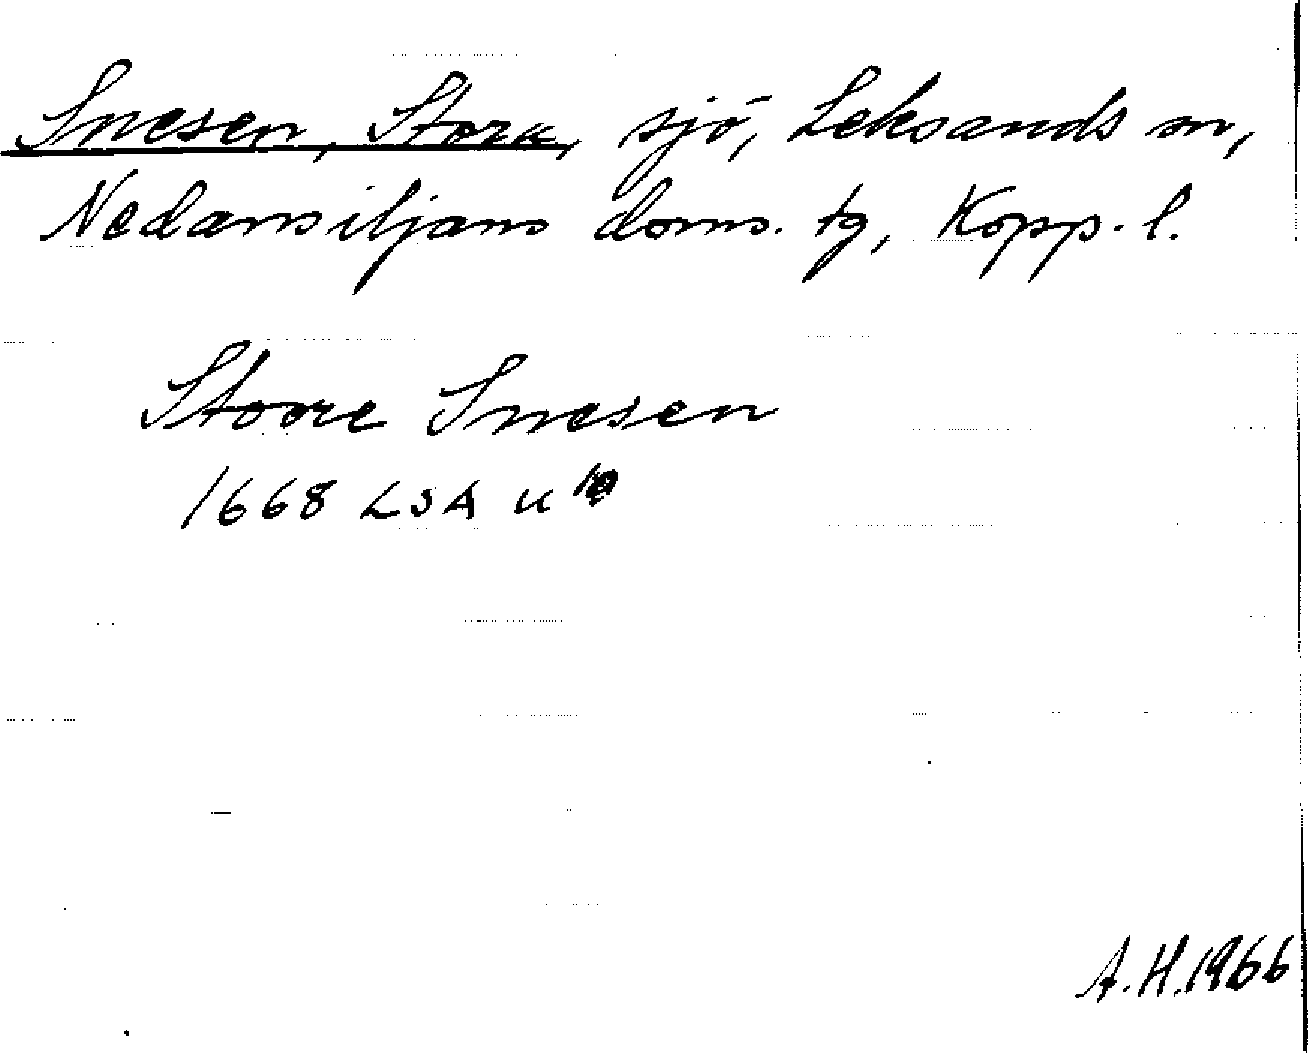 Snesen, Stora, sjö, Leksands sn,
Nedansiljans doms. tg, Kopp. l.
Stoore Snesen
1668 LSA U
A.H. 1966